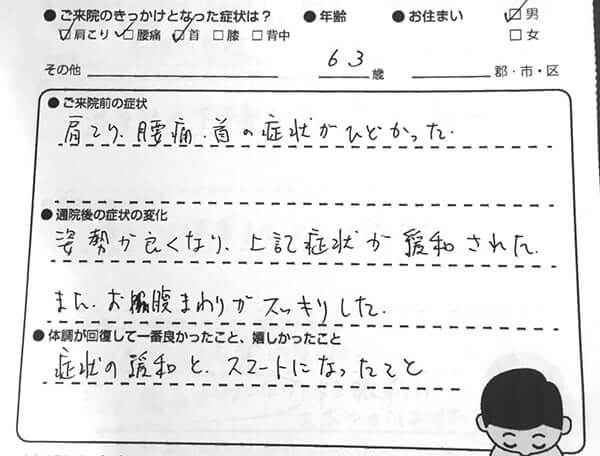 ● ご来院のきっかけとなった症状は？ ● 年齢 ● お住まい ☑ 男
☑ 肩こり ☑ 腰痛 ☑ 首 □ 膝 □ 背中 □ 女
その他 63歳 郡・市・区
● ご来院前の症状
肩こり、腰痛、首の症状がひどかった.
● 通院後の症状の変化
姿勢が良くなり、上記症状が緩和された.
また、お腹まわりがスッキリした.
● 体調が回復して一番良かったこと、嬉しかったこと
症状の緩和と、スマートになったこと